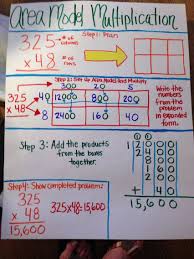 Area Model Multiplication
Step 1: Plan
325 # of columns
x 48 # of rows
Step 2: Set Up Area Model and Multiply
300 20 5
325 40 12000 800 200
x 48 8 2400 160 40
Write the numbers from the problem in expanded form.
Step 3: Add the products from the boxes together.
15,600
Step 4: Show completed problem:
325
x 48
15,600
325x48=15,600